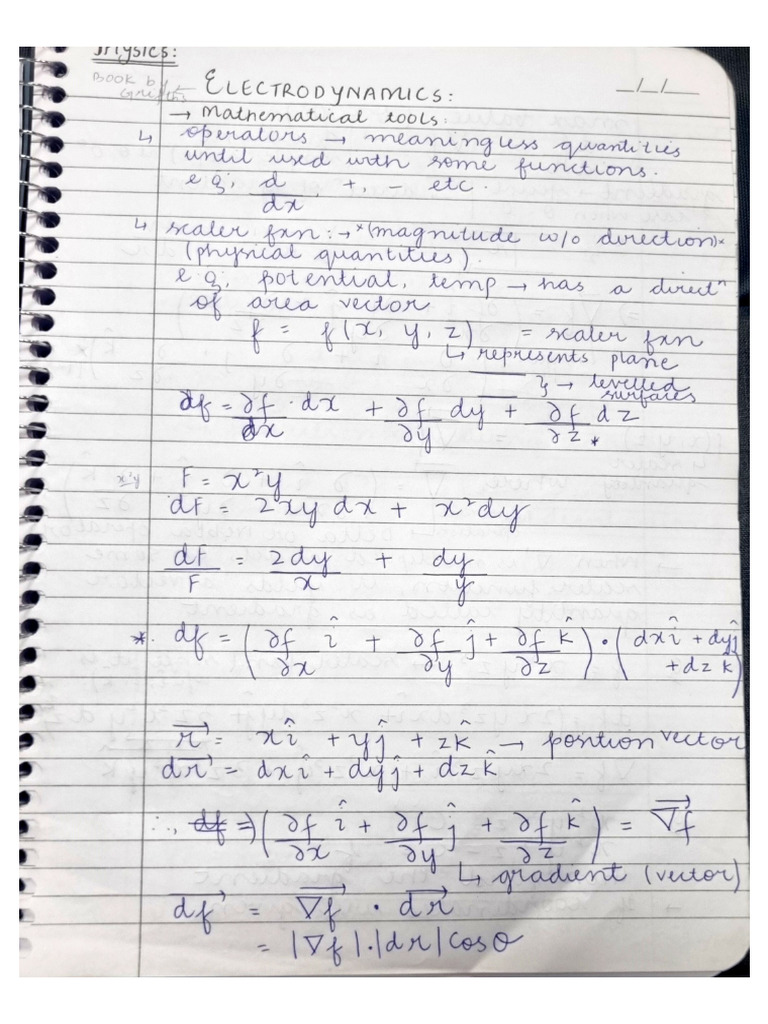 Physics:
Book by Griffiths
ELECTRODYNAMICS: _/_/__
→ Mathematical tools:
↳ operators → meaningless quantities
until used with some functions.
e.g; d/dx, +, - etc.
↳ scaler fxn: →*(magnitude w/o direction)*
(physical quantities).
e.g; potential, temp → has a directⁿ
of area vector
f = f(x, y, z) = scaler fxn
↳ represents plane
} → levelled surfaces
df = ∂f/dx · dx + ∂f/∂y dy + ∂f/∂z dz *
F = x²y
dF = 2xy dx + x²dy
dF/F = 2dy/x + dy/y
*. df = (∂f/∂x î + ∂f/∂y ĵ + ∂f/∂z k̂) · (dxî + dyĵ
+ dz k̂)
r⃗ = xî + yĵ + zk̂ → position vector
dr⃗ = dxî + dyĵ + dzk̂
∴, df =) (∂f/∂x î + ∂f/∂y ĵ + ∂f/∂z k̂) = ∇f⃗
↳ gradient (vector)
df⃗ = ∇f⃗ · dr⃗
= |∇f|·|dr|cosθ